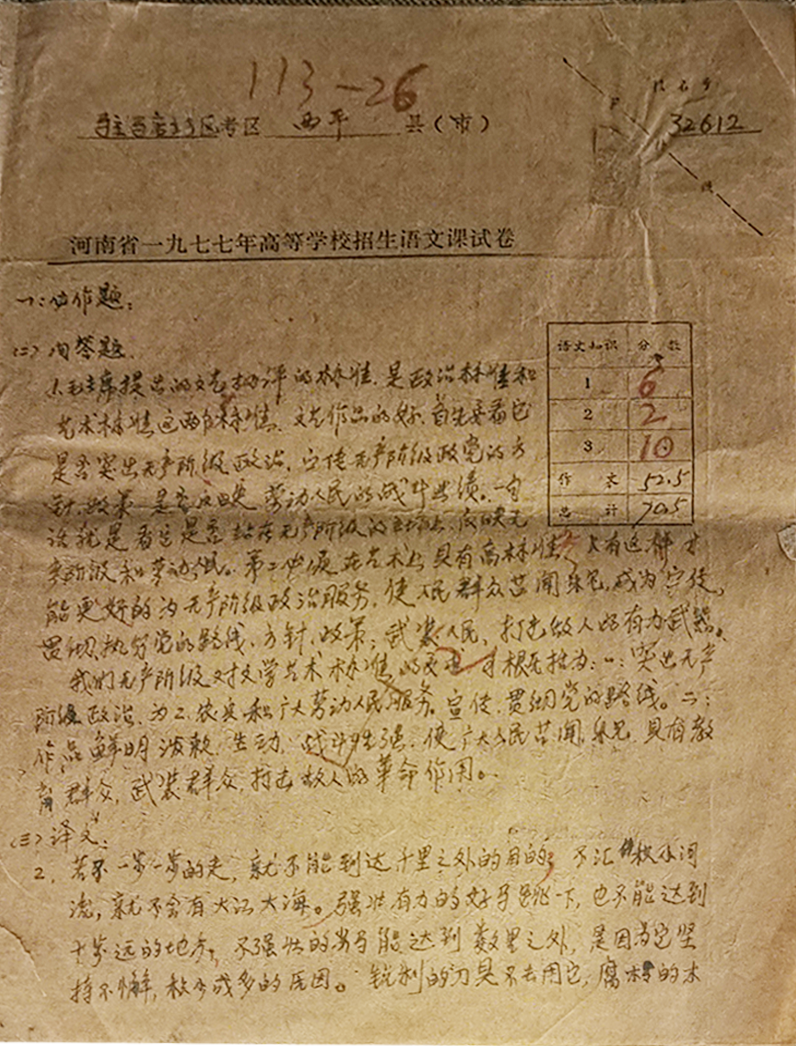 113-26
驻马店地区考区 西平 县(市)
报名号
32612
河南省一九七七年高等学校招生语文课试卷
一:作题:
(二)问答题.
语文知识 分数
1 6
2 2
3 10
作 文 52.5
总 计 70.5
1.毛主席提出的文艺批评的标准,是政治标准和
艺术标准这两个标准、文艺作品的好,首先要看它
是否突出无产阶级政治,宣传无产阶级政党的方
针、政策,是否反映劳动人民的战斗业绩。一句
话就是看它是否站在无产阶级的立场上,反映无
产阶级和劳动人民。第二也便在艺术上具有高标准,只有这样才
能更好的为无产阶级政治服务,使人民群众喜闻乐见,成为宣传,
贯彻、执行党的路线、方针、政策;武装人民、打击敌人的有力武器。
我们无产阶级对文学艺术标准的 根本 为:一:突出无产
阶级政治、为工农兵和广大劳动人民服务。宣传、贯彻党的路线。二:
作品鲜明活泼、生动,战斗性强,使广大人民喜闻乐见,具有教
育群众,武装群众,打击敌人的革命作用。
(三)译文:
2. 若不一步一步的走,就不能到达千里之外的目的;不汇 小河
流,就不会有大江大海。强壮有力的好马跳一下,也不能达到
十步远的地方;不强壮的劣马能达到数里之外,是因为它坚
持不懈,积少成多的原因。锐利的刀具不去用它,腐朽的木